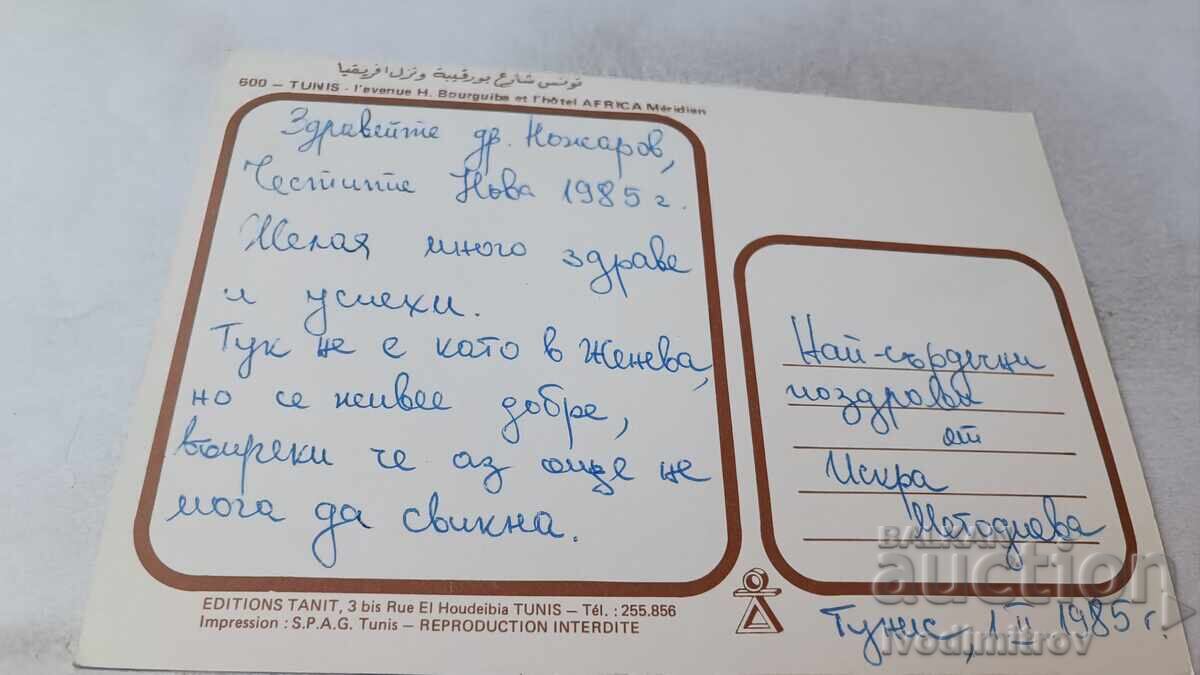 تونس شارع بورقيبة ونزل افريقيا
600 – TUNIS - l'avenue H. Bourguiba et l'hôtel AFRICA Méridien
Здравейте др. Ножаров,
Честита Нова 1985 г.
Желая много здраве
и успехи.
Тук не е като в Женева,
но се живее добре,
въпреки че аз още не
мога да свикна.
Най-сърдечни
поздрави
от
Искра
Методиева
Тунис, 1 II 1985 г.
EDITIONS TANIT, 3 bis Rue El Houdeibia TUNIS – Tél. : 255.856
Impression : S.P.A.G. Tunis – REPRODUCTION INTERDITE
BALKAN
auction
ivodimitrov